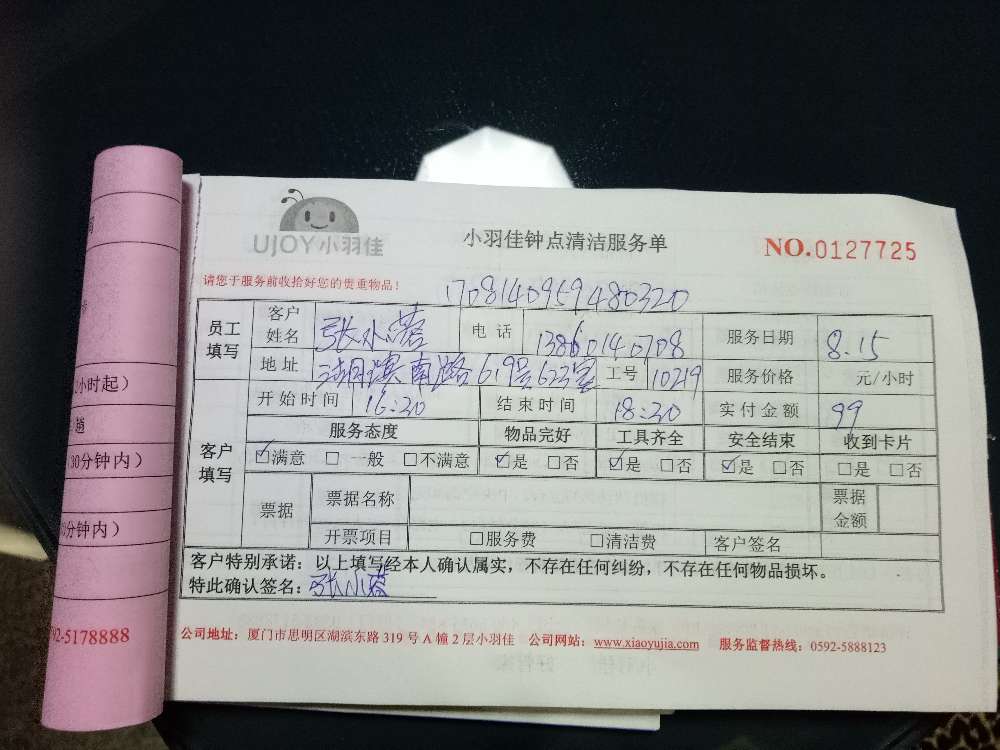 UJOY小羽佳
小羽佳钟点清洁服务单
NO.0127725
请您于服务前收拾好您的贵重物品！
1708140959480320
员工填写 客户姓名 张小蓉 电话 13860140708 服务日期 8.15
地址 湖滨南路619号623室 工号 10219 服务价格 元/小时
客户填写 开始时间 16:30 结束时间 18:30 实付金额 99
服务态度 物品完好 工具齐全 安全结束 收到卡片
☑满意 □一般 □不满意 ☑是 □否 ☑是 □否 ☑是 □否 □是 □否
票据 票据名称 票据金额
开票项目 □服务费 □清洁费 客户签名
客户特别承诺：以上填写经本人确认属实，不存在任何纠纷，不存在任何物品损坏。
特此确认签名：张小蓉
公司地址：厦门市思明区湖滨东路 319 号 A 幢 2 层小羽佳 公司网站：www.xiaoyujia.com 服务监督热线：0592-5888123
小时起）
30分钟内）
分钟内）
92-5178888